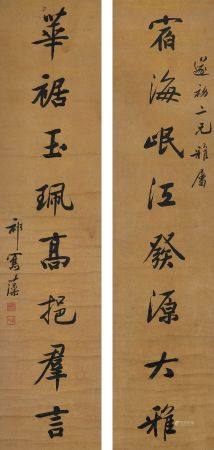 遂初二兄雅属
宿海岷江發源大雅
華裾玉珮高挹羣言
祁寯藻